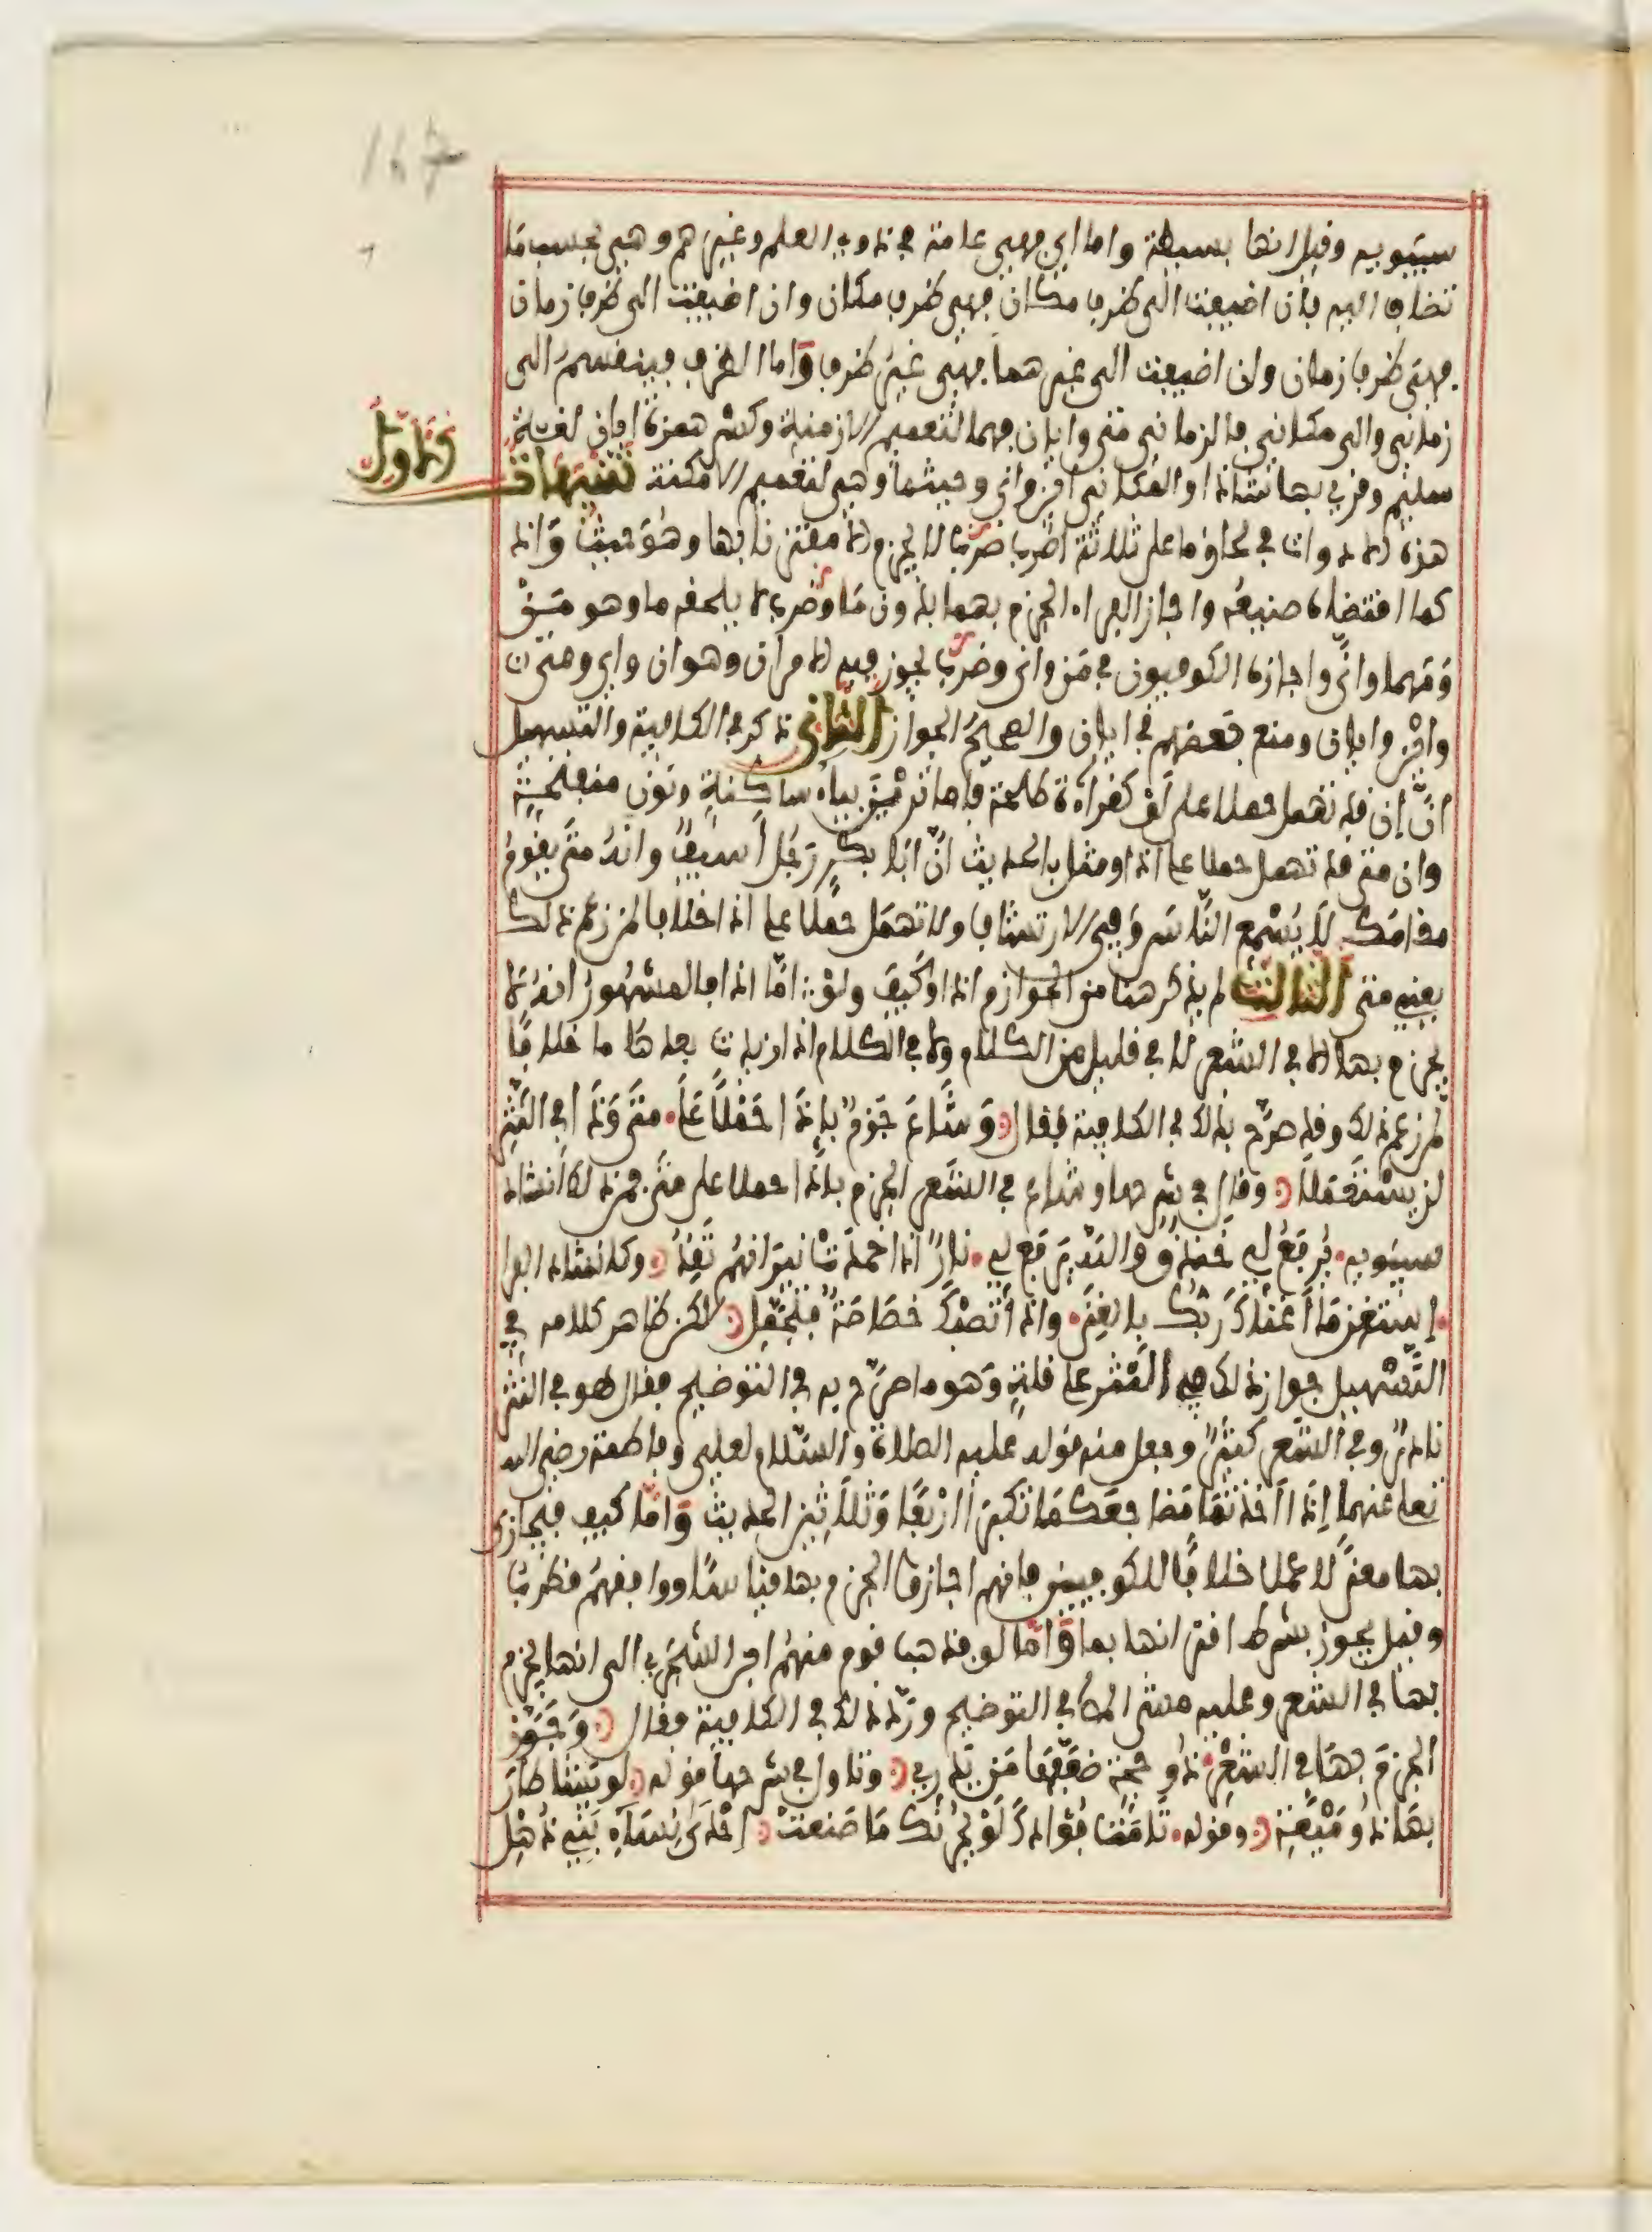 167
سيبويه وقيل انها بسيطة واما اي فهي عامة في ذوي العلم وغيرهم وهي بحسب ما
تضاف اليه فان اضيفت الى ظرف مكان فهي ظرف مكان وان اضيفت الى ظرف زمان
فهي ظرف زمان وان اضيفت الى غيرهما فهي غير ظرف واما الظرف فينقسم الى
زماني والى مكاني فالزماني متى وايان فهما لتعميم الازمنة وكسر همزة ايان لغة
سليم وقرئ بها شاذا والمكاني اين واني وحيثما وهي لتعميم الامكنة تنبيهات الاول
هذه الادوات في لحاق ما على ثلاثة اضرب ضرب لا يجزم الا مقترنا بها وهو حيث واذ
كما اقتضاه صنيعه واجاز الفراء الجزم بهما بدون ما وضرب لا يلحقه ما وهو من
ومهما وانى واجازه الكوفيون في من وانى وضرب يجوز فيه الامران وهو ان واي ومتى
واين وايان ومنع بعضهم في ايان والصحيح الجواز الثاني ذكر في الكافية والتسهيل
ان إن قد تهمل حملا على لو كقراءة طلحة فاما ترين بياء ساكنة ونون مفتوحة
وان متى قد تهمل حملا على اذا ومثل بالحديث ان ابا بكر رجل أسيف وانه متى يقوم
مقامك لا يسمع الناس وفي الارتشاف ولا تهمل حملا على اذا خلافا لمن زعم ذلك
يعني متى الثالث لم يذكر هنا من الجوازم اذا وكيف ولو اما اذا فالمشهور انه لا
يجزم بها الا في الشعر لا في قليل من الكلام ولا في الكلام اذا زيدت بعدها ما خلافا
لمن زعم ذلك وقد صرح بذلك في الكافية فقال وشاع جزم بإذا حملا على متى وذا في النثر
لن يستعملا وقال في شرحها وشاع في الشعر الجزم باذا حملا على متى فمن ذلك انشاد
سيبويه يرفع لي خندف والله يرفع لي نارا اذا خمدت نيرانهم تقد وكانشاد الفرا
استغن ما أغناك ربك بالغنى واذا تصبك خصاصة فتجمل لكن ظاهر كلامه في
التسهيل جواز ذلك في النثر على قلة وهو ما صرح به في التوضيح فقال هو في النثر
نادر وفي الشعر كثير وجعل منه قوله عليه الصلاة والسلام لعلي وفاطمة رضي الله
تعالى عنهما إذا أخذتما مضاجعكما تكبرا أربعا وثلاثين الحديث واما كيف فيجازى
بها معنى لا عملا خلافا للكوفيين فانهم اجازوا الجزم بها قياسا ووافقهم قطرب
وقيل يجوز بشرط اقترانها بما واما لو فذهب قوم منهم ابن الشجري الى انها يجزم
بها في الشعر وعليه مشى المص في التوضيح ورد ذلك في الكافية فقال وجوز
الجزم بها في الشعر ذو حجة ضعفها من يدري وتاول في شرحها قوله لو يشا طار
بها ذو ميعة وقوله تامت فؤادك لو يحزنك ما صنعت إحدى نساء بني ذهل